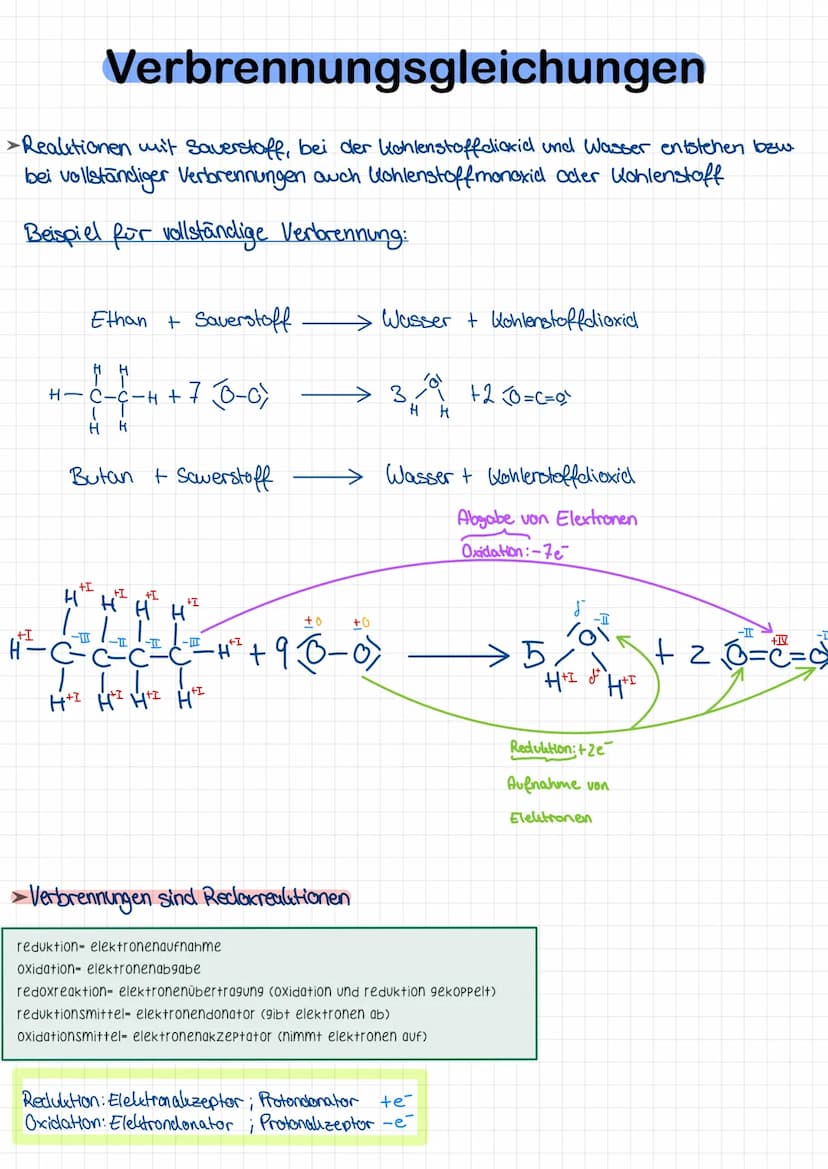 Verbrennungsgleichungen
➤Reaktionen mit Sauerstoff, bei der Kohlenstoffdioxid und Wasser entstehen bzw
bei vollständiger Verbrennungen auch Kohlenstoffmonoxid oder Kohlenstoff
Beispiel für vollständige Verbrennung:
Ethan + Sauerstoff ⟶ Wasser + Kohlenstoffdioxid
H H
H-C-C-H + 7 O-O ⟶ 3 O +2 O=C=O
H H H H
Butan + Sauerstoff ⟶ Wasser + Kohlenstoffdioxid
Abgabe von Elextronen
Oxidation:-7e⁻
H +I H +I H +I H +I ±0 ±0 δ⁻ -II
+I -III -II -II -III +I -II +IV -I
H-C-C-C-C-H + 9 O-O ⟶ 5 O + 2 O=C=O
H+I H+I H+I H+I H+I δ⁺ H+I
Reduktion:+2e⁻
Aufnahme von
Elektronen
➤Verbrennungen sind Redoxreaktionen
reduktion= elektronenaufnahme
oxidation= elektronenabgabe
redoxreaktion= elektronenübertragung (oxidation und reduktion gekoppelt)
reduktionsmittel= elektronendonator (gibt elektronen ab)
oxidationsmittel= elektronenakzeptator (nimmt elektronen auf)
Reduktion: Elektronakzeptor ; Protondonator +e⁻
Oxidation: Elektrondonator ; Protonakzeptor -e⁻